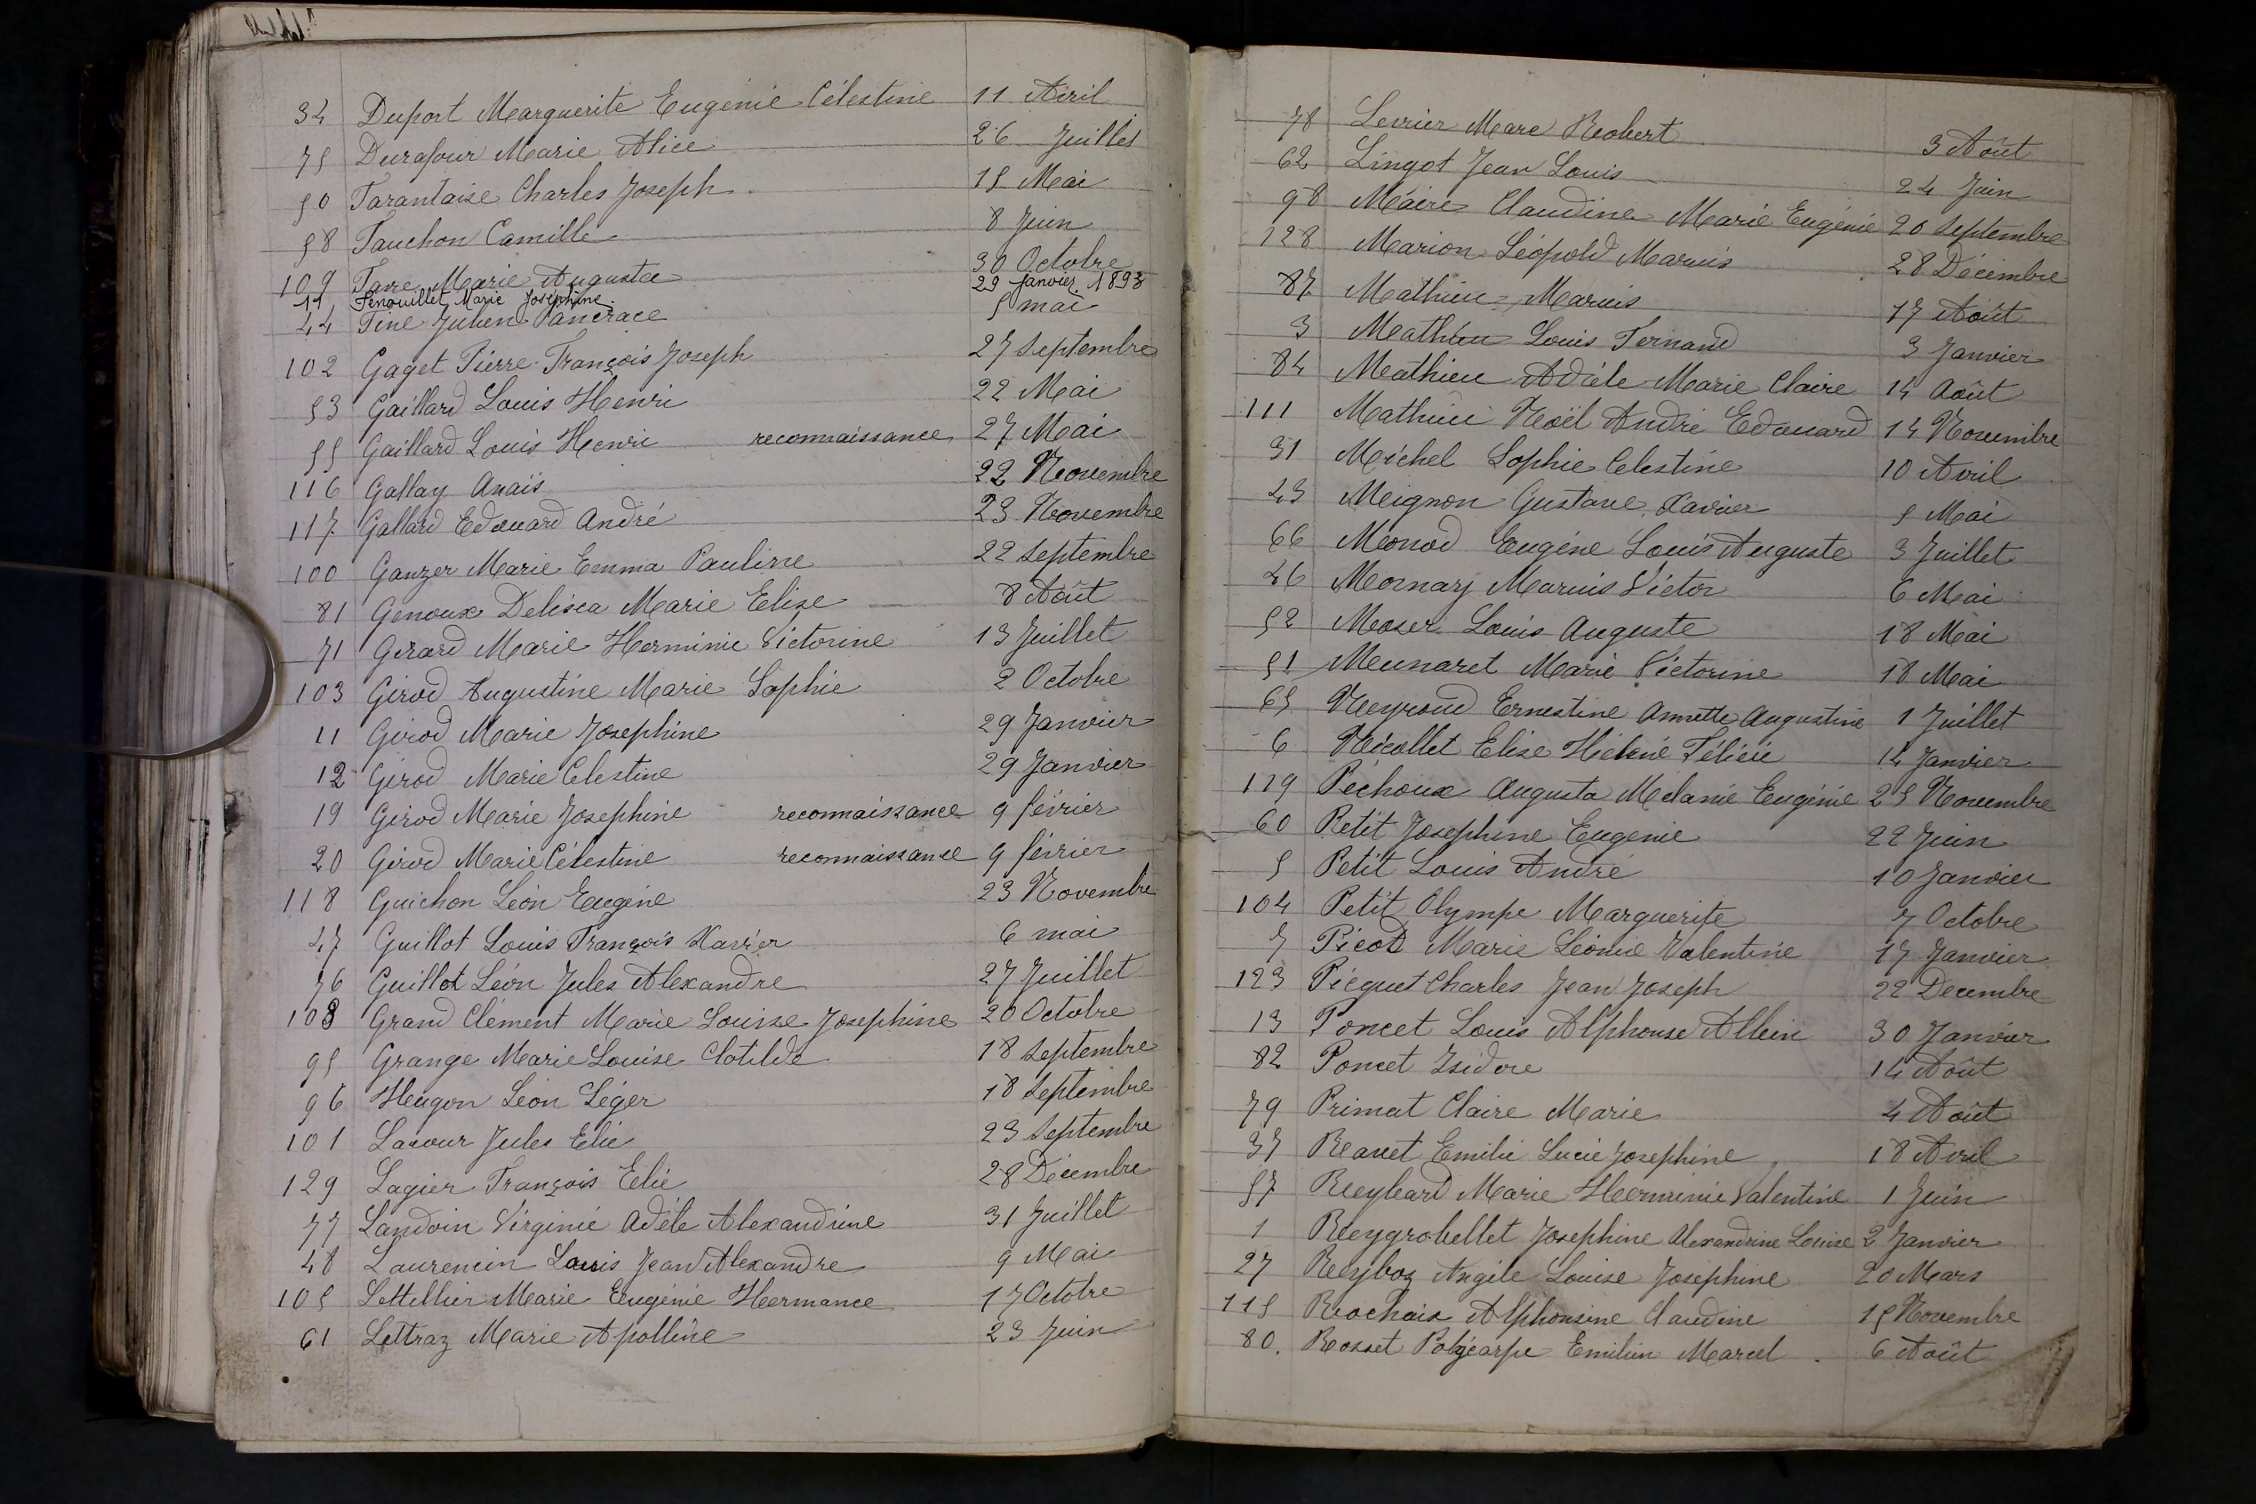 34 Duport Marguerite Eugénie Célestine 11 Avril
75 Durafour Marie Alice 26 Juillet
50 Farantaise Charles Joseph 15 Mai
58 Fauchon Camille 8 Juin
109 Favre Marie Augusta 30 Octobre
11 Fenouillet Marie Joséphine 29 Janvier 1893
44 Fine Julien Pancrace 5 mai
102 Gaget Pierre François Joseph 27 Septembre
53 Gaillard Louis Henri 22 Mai
55 Gaillard Louis Henri reconnaissance 27 Mai
116 Gallay Anais 22 Novembre
117 Gallard Edouard André 23 Novembre
100 Ganzer Marie Emma Pauline 22 Septembre
81 Genoux Delisca Marie Elise 8 Août
71 Girard Marie Herminie Victorine 13 Juillet
103 Girod Augustine Marie Sophie 2 Octobre
11 Girod Marie Josephine 29 Janvier
12 Girod Marie Celestine 29 Janvier
19 Girod Marie Josephine reconnaissance 9 février
20 Girod Marie Célestine reconnaissance 9 février
118 Guichon Léon Eugéne 23 Novembre
47 Guillot Louis François Xavier 6 mai
76 Guillot Léon Jules Alexandre 27 Juillet
108 Grand Clément Marie Louise Josephine 20 Octobre
95 Grange Marie Louise Clotilde 18 Septembre
96 Hugon Léon Léger 18 Septembre
101 Lacour Jules Elie 23 Septembre
129 Lagier François Elie 28 Décembre
77 Landoin Virginie Adéle Alexandrine 31 Juillet
48 Laurencin Louis Jean Alexandre 9 Mai
105 Lettellier Marie Eugénie Hermance 17 Octobre
61 Lettraz Marie Apolline 23 Juin
78 Levrier Marc Robert 3 Août
62 Lingot Jean Louis 24 Juin
98 Maire Claudine Marie Eugénie 20 Septembre
128 Marion Léopold Marius 28 Décembre
87 Mathieu Marius 17 Août
3 Mathieu Louis Fernand 3 Janvier
84 Mathieu Adèle Marie Claire 14 Août
111 Mathieu Noël André Edouard 14 Novembre
31 Michel Sophie Celestine 10 Avril
43 Meignon Gustave Xavier 5 Mai
66 Monod Eugéne Louis Auguste 3 Juillet
46 Mornay Marius Victor 6 Mai
52 Moser Louis Auguste 18 Mai
51 Meunaret Marie Victorine 18 Mai
65 Neyroud Ernestine Annette Augustine 1 Juillet
6 Nicollet Elise Hélène Félicie 14 Janvier
119 Péchoux Augusta Mélanie Eugénie 25 Novembre
60 Petit Josephine Eugenie 22 Juin
5 Petit Louis André 10 Janvier
104 Petit Olympe Marguerite 7 Octobre
7 Picot Marie Léonie Valentine 17 Janvier
123 Picquet Charles Jean Joseph 22 Decembre
13 Poncet Louis Alphonse Albin 30 Janvier
82 Poncet Isidore 14 Août
79 Primat Claire Marie 4 Août
37 Ravet Emilie Lucie Josephine 18 Avril
57 Reybard Marie Herminie Valentine 1 Juin
1 Reygrobellet Josephine Alexandrine Louise 2 Janvier
27 Reyboz Angèle Louise Josephine 20 Mars
115 Rochaix Alphonsine Claudine 15 Novembre
80. Rosset Polycarpe Emilien Marcel 6 Août